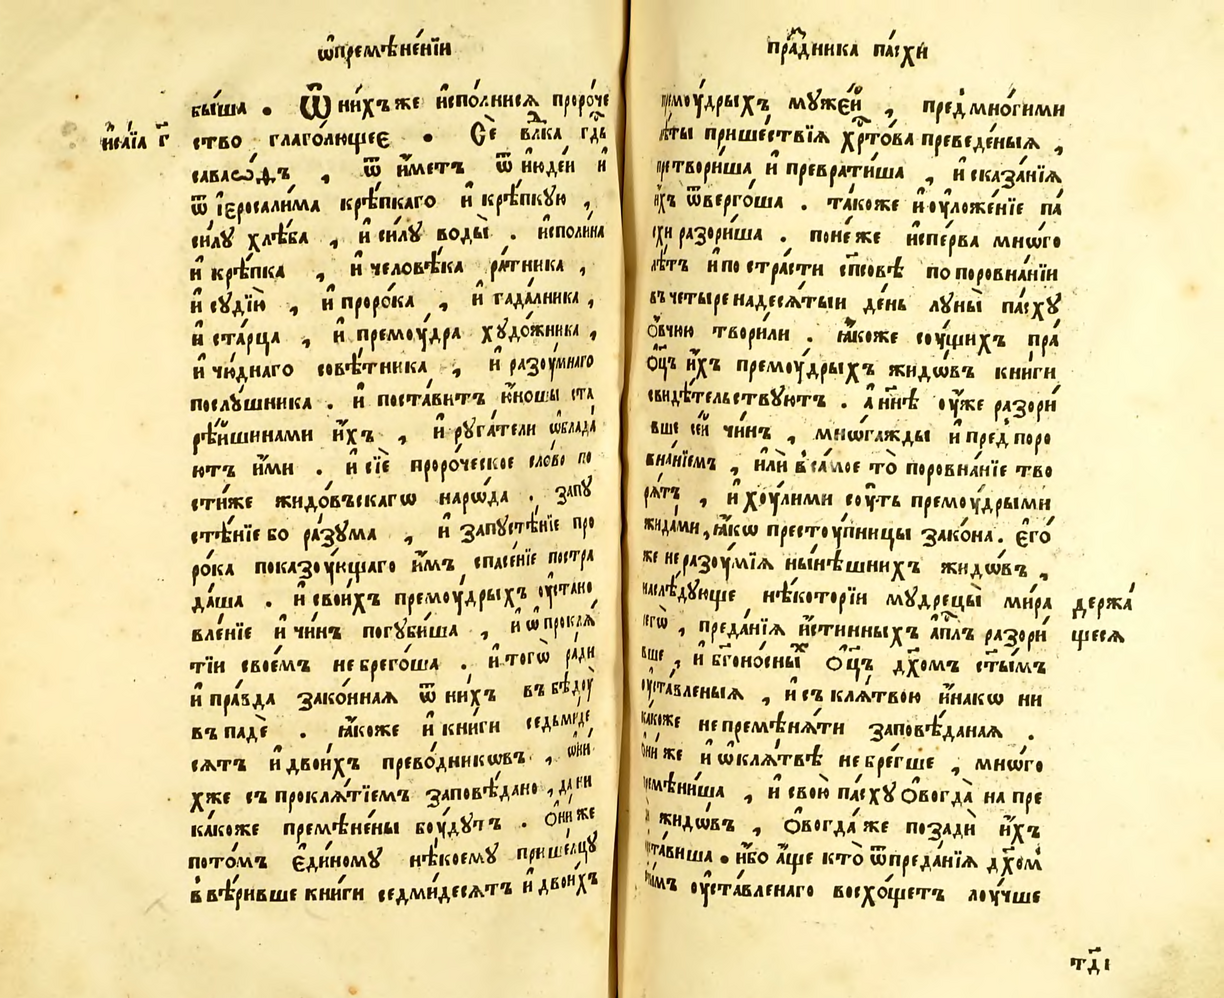 ѡ҆премѣне́нїи
бы́ша . Ѿ ни́хъ же и҆спо́лнисѧ проро́че
и҆са́їа г҃
ство глаго́лющеє . Се́ влⷣка гдⷭ҇ь
саваѡ́ѳъ , ѿ и҆́метъ ѿ и҆юде́и и҆
ѿ і҆еросали́ма крѣ́пкаго и҆ крѣ́пкую ,
си́лꙋ хлѣ́ба , и҆ си́лꙋ воды̀ . и҆споли́на
и҆ крѣ́пка , и҆ человѣ́ка ра́тника ,
и҆ сꙋдїю̀ , и҆ проро́ка , и҆ гада́лника ,
и҆ ста́рца , и҆ премоу́дра хꙋдо́жника ,
и҆ чю́днаго совѣ́тника , и҆ разоу́мнаго
послꙋ́шника . и҆ поста́витъ ю҆́ношы ста
рѣ́йшинами и҆́хъ , и҆ рꙋга́тели ѡ҆блада́
ютъ и҆́ми . и҆ сїѐ проро́ческое сло́во по
сти́же жидо́въскагѡ наро́да . запꙋ
стѣ́нїе бо ра́зꙋма , и҆ запꙋстѣ́нїе про
ро́ка показоу́ющаго и҆́мъ спасе́нїе постра
да́ша . и҆ свои́хъ премоу́дрыхъ оу҆стано
вле́нїе и҆ чи́нъ погꙋби́ша , и҆ ѡ҆ проклѧ́
тїи свое́мъ не брего́ша . и҆ тогѡ̀ ра́ди
и҆ пра́вда зако́ннаѧ ѿ ни́хъ въ бѣдоу̀
въ падѐ . ꙗ҆́коже и҆ кни́ги се́дьмиде
сѧтъ и҆ двои́хъ прево́дникѡвъ , ѡ҆ни́
хже съ проклѧ́тїемъ заповѣ́дано , да ни
ка́коже премѣне́ны боу́дꙋтъ . Ѻ҆ни́ же
пото́мъ є҆ди́номꙋ нѣ́коемꙋ пришелцꙋ̀
в вѣ́ривше кни́ги седмидесѧ́тъ и҆ двои́хъ
пра́здника па́схи
премоу́дрыхъ мꙋже́й , пред мно́гими
лѣ́ты прише́ствїѧ хрⷭ҇то́ва преведе́ныѧ ,
претвори́ша и҆ преврати́ша , и҆ сказа́нїѧ
и҆́хъ ѿверго́ша . та́коже и҆ оу҆ложе́нїе па́
схи разори́ша . поне́же и҆спе́рва мнѡ́го
лѣ́тъ и҆ по стра́сти сп҃совѣ по поровна́нїи
въ четыре надесѧ́тыи де́нь лꙋны̀ па́схꙋ
о҆́вчию твори́ли . ꙗ҆́коже соу́щихъ пра
о҆ц҃ъ и҆́хъ премоу́дрыхъ жидѡ́въ кни́ги
свидѣ́тельствꙋютъ . а нн҃ѣ оу҆́же разори́
вше се́й чи́нъ , мнѡга́жды и҆ пред поро
вна́нїемъ , и҆лѝ в са́мое то̀ поровна́нїе тво
рѧ́тъ , и҆ хоу́лими соу́ть премоу́дрыми
жида́ми , ꙗ҆́кѡ престоу́пницы зако́на . є҆го́
же не разоумі́ѧ ны́нѣшнихъ жидѡ́въ ,
наслѣ́дꙋюще нѣ́которїи мꙋдрецы̀ ми́ра
держа́
сегѡ̀ , преда́нїѧ и҆́стинныхъ а҆пⷭ҇лъ разори́
щесѧ
вше , и҆ бг҃оно́сныⷯ Ѻ҆ц҃ъ дх҃омъ ст҃ымъ
оу҆ста́вленыѧ , и҆ съ клѧ́твою и҆́накѡ ни
ка́коже не премѣнѧ́ти заповѣ́данаѧ .
Ѻ҆ни́ же и҆ ѡ҆ клѧ́твѣ не бре́гше , мнѡ́го
премѣни́ша , и҆ свою̀ па́схꙋ ѻ҆вогда̀ на пре
жидѡ́въ , Ѻ҆вогда́ же позадѝ и҆́хъ
ста́виша . и҆́бо а҆́ще кто̀ ѿ преда́нїѧ дх҃ом
оу҆ста́вленаго восхо́щетъ лоу́чше